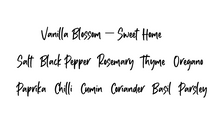 Vanilla Blossom — Sweet Home
Salt Black Pepper Rosemary Thyme Oregano
Paprika Chilli Cumin Coriander Basil Parsley